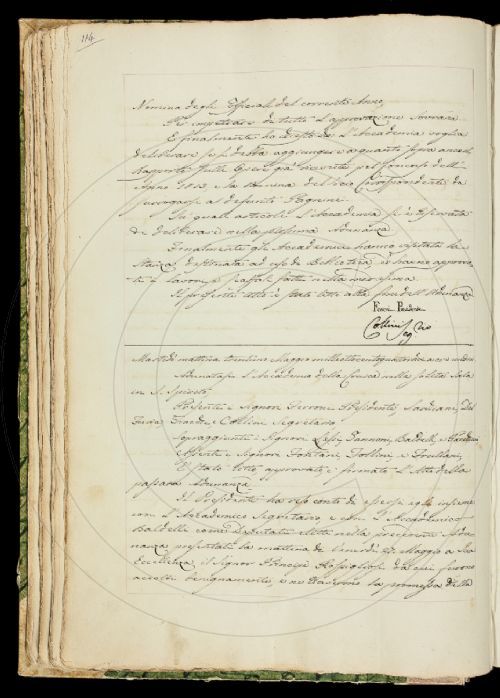 114
Nomina degli Officiali del corrente Anno,
Per impetrare da tutti l'approvazione Sovrana.
E finalmente ha chiesto se l'Accademia voglia
deliberare se si debba aggiungere a quanto sopra anco il
Rapporto sulle Opere già ricevute pel concorso dell'
Anno 1813, la Nomina del Socio Corrispondente da
surrogarsi al defunto Pignotti.
Su quali articoli l'Accademia si è riservata
di deliberare nella prossima Adunanza
Finalmente gli Accademici hanno visitata la
Stanza destinata ad uso de Bibliotera, e hanno approva
ti i lavori stati fatti nella medesima.
Il presente atto è stato letto alla fine dell'Adunanza
Ferroni Presidente
Collini Seg.rio
Martedì mattina trentuno Maggio milleottocentoquattordici a ore undici
Adunatasi l'Accademia della Crusca nella solita Sala
in S. Spirito.
Presenti i Signori Ferroni Presidente, Sarchiani, Del
Furia, Fiacchi, Collini Segretario
Sopraggiunti i Signori Lessi, Zannoni, Baldelli, e
Assenti i Signori Fontani, Follini e Frullani,
È stato letto approvato e firmato l'Atto della
passata Adunanza
Il Presidente ha reso conto di essersi egli insieme
con l'Accademico Segretario e con l'Accademico
Baldelli come Deputati eletti nella precedente Adu
nanza presentati la mattina de' Maggio a Sua
Eccellenza il Signor Principe Rospigliosi da cui furono
accolti benignamente, e ne ebbero la promessa della